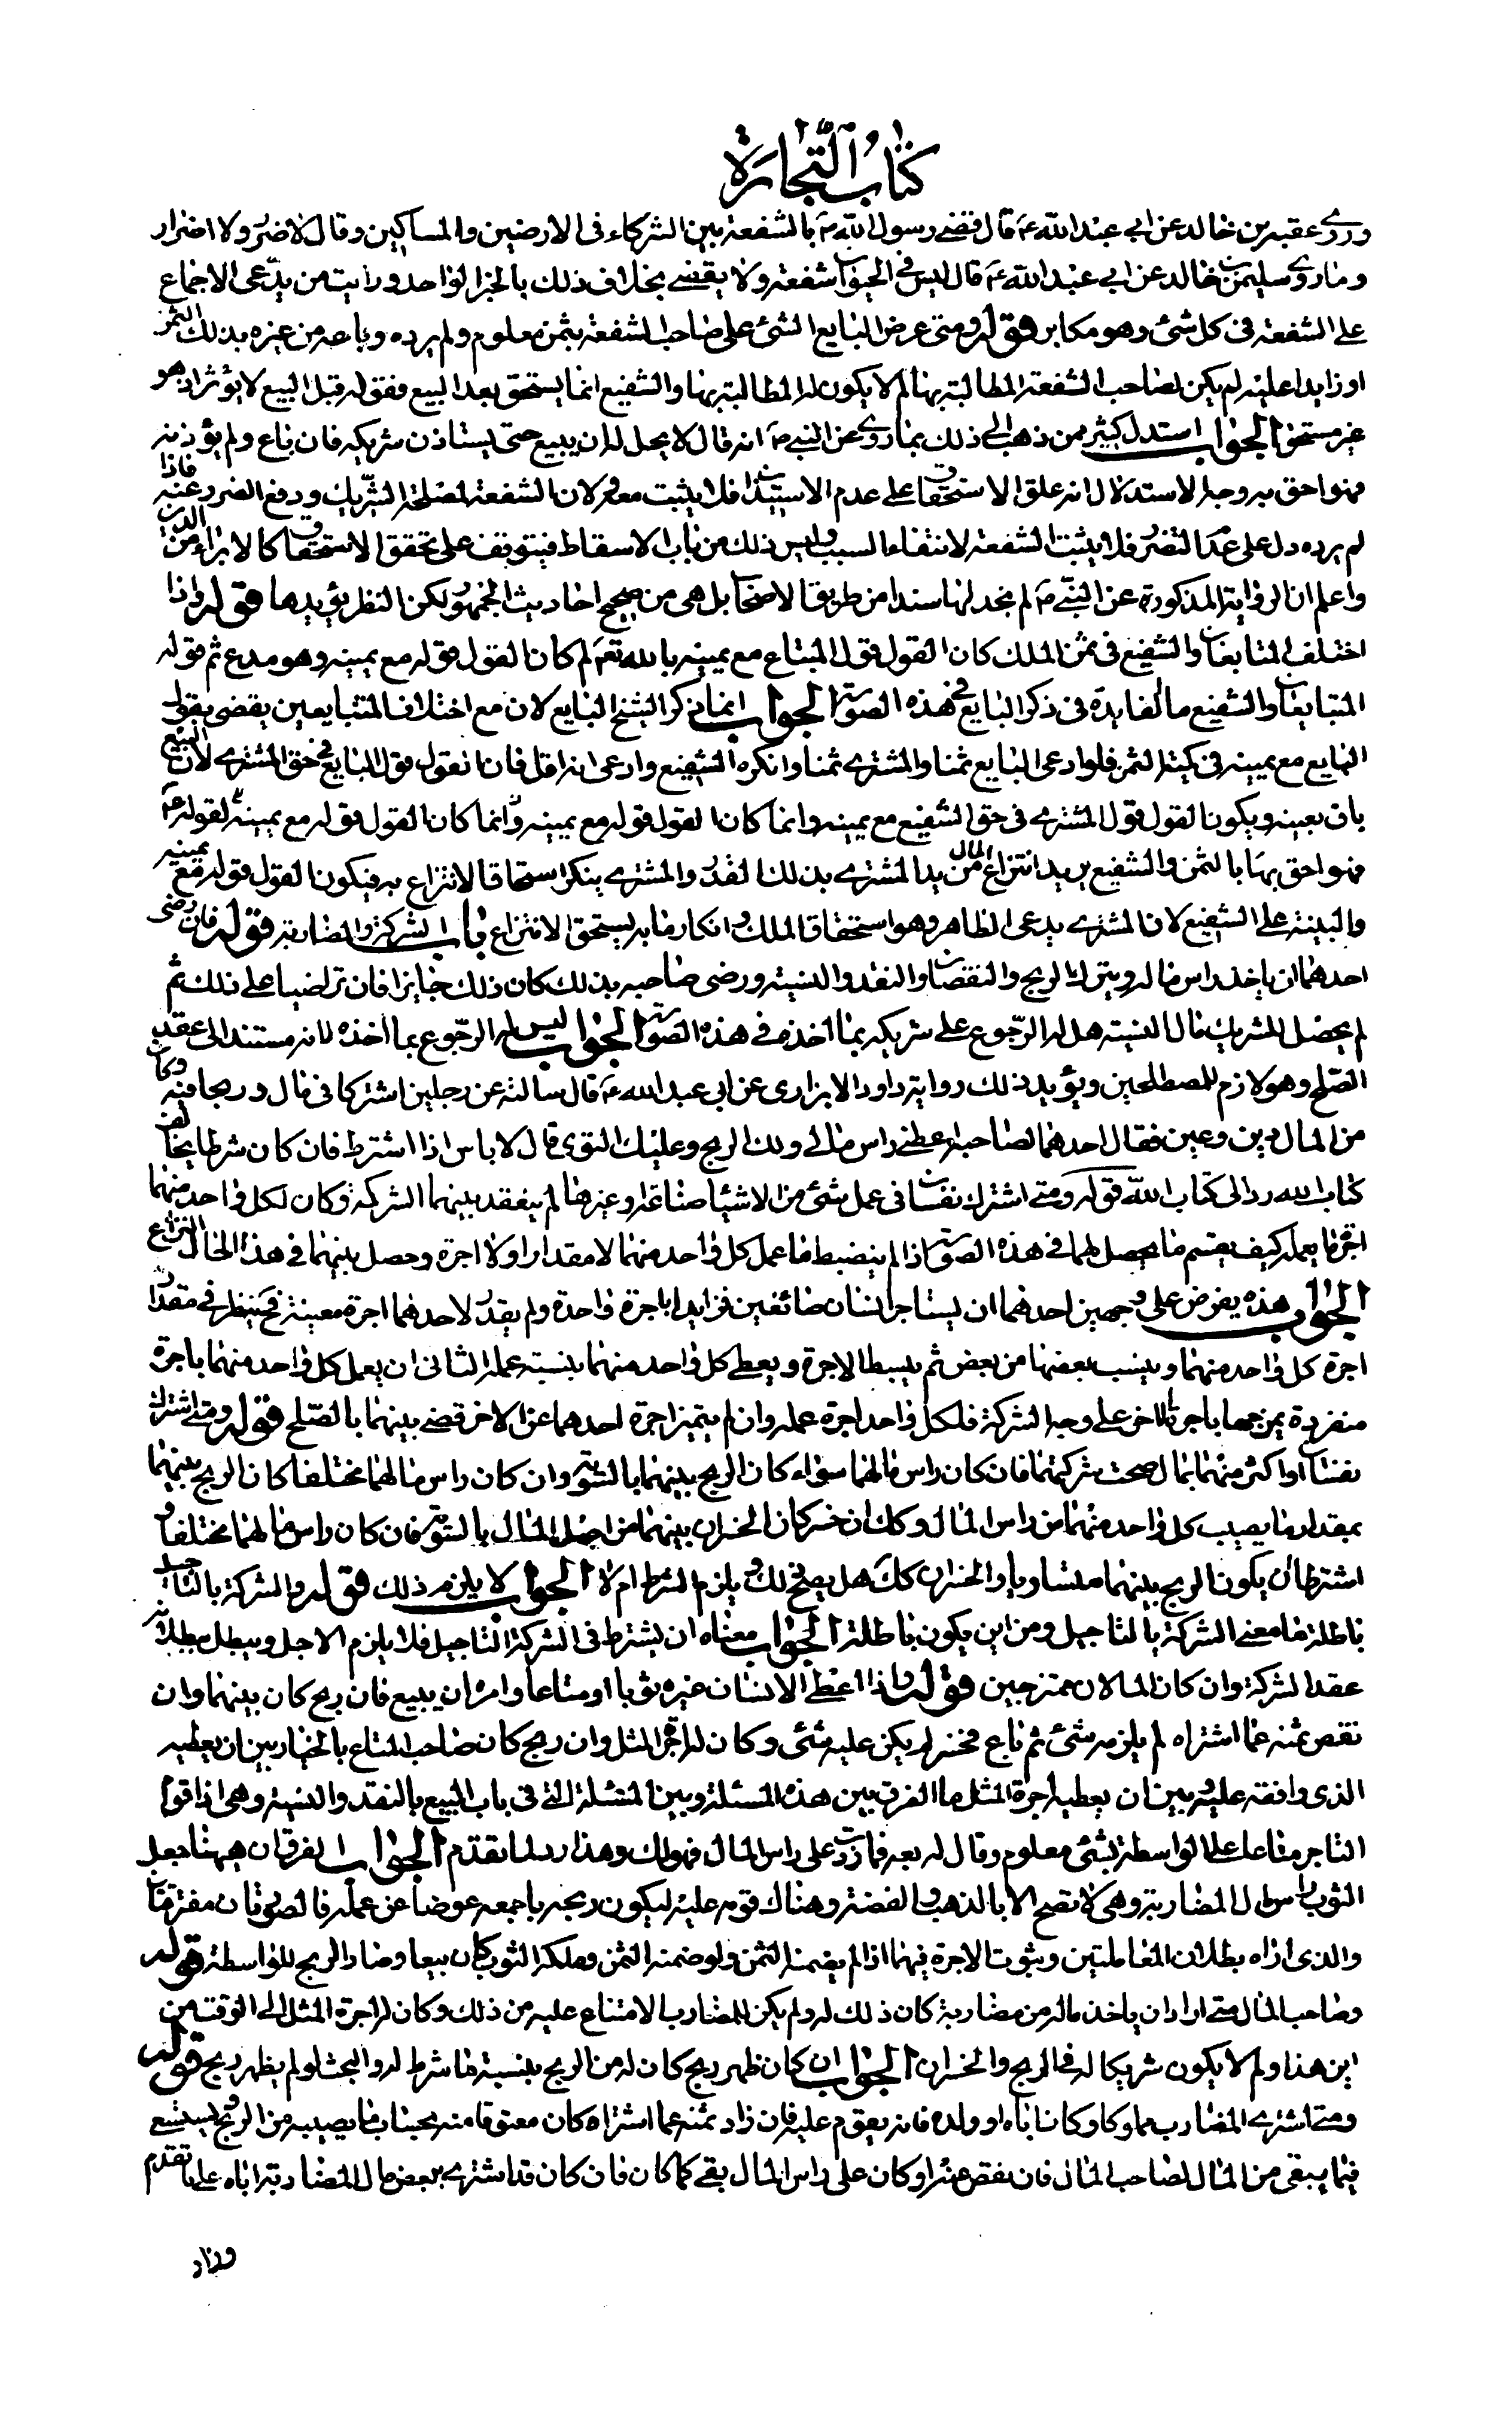 كتاب التجارة
وروى عقبة بن خالد عن ابى عبد الله ع قال قضى رسول الله ص بالشفعة بين الشركاء فى الارضين والمساكين وقال لا ضرر ولا اضرار
وما روى سليمن بن خالد عن ابى عبد الله ع قال ليس فى الحيوان شفعة ولا يقضى بخلاف ذلك بالخبر الواحد ورايت من يدعى الاجماع
على الشفعة فى كل شئ وهو مكابر قوله ومتى عرض البايع الشئ على صاحب الشفعة بثمن معلوم ولم يرده وباعه من غيره بذلك الثمن
او زايدا عليه لم يكن لصاحب الشفعة المطالبة بها لم لا يكون له المطالبة بها والشفيع انما يستحق بعد البيع فقوله قبل البيع لا يؤثر اذ هو
غير مستحق الجواب استدل كثير ممن ذهب الى ذلك بما روى عن النبى ص انه قال لا يحل له ان يبيع حتى يستاذن شريكه فان باع ولم يؤذنه
فهو احق به وجه الاستدلال انه علق الاستحقاق على عدم الاستيذان فلا يثبت معه ولان الشفعة لمصلحة الشريك ودفع الضرر عنه فاذا
لم يرده دل على عدم التضرر فلا يثبت الشفعة لانتفاء السبب وليس ذلك من باب الاسقاط فيتوقف على تحقق الاستحقاق كالابراء من الدين
واعلم ان الرواية المذكورة عن النبى ص لم نجد لها سندا من طريق الاصحاب بل هى من صحيح احاديث الجمهور لكن النظر يؤيدها قوله واذا
اختلف المتابعان والشفيع فى ثمن الملك كان القول قول المبتاع مع يمينه بالله تعم لم كان القول قوله مع يمينه وهو مدع ثم قوله
المتبايعان والشفيع ما الفايدة فى ذكر البايع فى هذه الصورة الجواب انما ذكر الشيخ البايع لان مع اختلاف المتبايعين يقضى بقول
البايع مع يمينه فى كمية الثمن فلو ادعى البايع ثمنا والمشترى ثمنا وانكره الشفيع وادعى انه اقل فانا نقول قول البايع فى حق المشترى لان المبيع
باق بعينه ويكون القول قول المشترى فى حق الشفيع مع يمينه وانما كان القول قوله مع يمينه وانما كان القول قوله مع يمينه لقوله ع
فهو احق بها بالثمن والشفيع يريد انتزاع المال من يد المشترى بذلك القدر والمشترى ينكر استحقاق الانتزاع به فيكون القول قوله مع يمينه
والبينة على الشفيع لان المشترى يدعى الظاهر وهو استحقاق الملك وانكار ما به يستحق الانتزاع باب الشركة والمضاربة قوله فان رضى
احدهما ان ياخذ راس ماله ويترك الربح والنقصان والنقد والنسية ورضى صاحبه بذلك كان ذلك جايزا فان تراضيا على ذلك ثم
لم يحصل للشريك مال النسية هل له الرجوع على شريكه بما اخذه فى هذه الصورة الجواب ليس له الرجوع بما اخذه لانه مستند الى عقد
الصلح وهو لازم للمصطلحين ويؤيد ذلك رواية داود الابزارى عن ابى عبد الله ع قال سالته عن رجلين اشتركا فى مال وربحا فيه وكان
من المال دين وعين فقال احدهما لصاحبه اعطنى راس مالى ولك الربح وعليك التوى قال لا باس اذا اشترط فان كان شرطا يخالف
كتاب الله رد الى كتاب الله قوله ومتى اشترك نفسان فى عمل شئ من الاشياء صناعة او غيرها لم ينعقد بينهما الشركة وكان لكل واحد منهما
اجرة ما يعمله كيف يقسم ما يحصل لهما فى هذه الصورة اذا لم ينضبط ما عمل كل واحد منهما لا مقدارا ولا اجرة وحصل بينهما فى هذا الحال النزاع
الجواب هذه يفرض على وجهين احدهما ان يستاجر انسان صائغين فزايدا باجرة واحدة ولم يقدر لاحدهما اجرة معينة فح ينظر فى مقدار
اجرة كل واحد منهما وينسب بعضها من بعض ثم يبسط الاجرة ويعطى كل واحد منهما بنسبة عمله الثانى ان يعمل كل واحد منهما باجرة
منفردة يمزجها باجرة الاخر على وجه الشركة فلكل واحد اجرة عمله وان لم يتميز اجرة احدهما عن الاخر قضى بينهما بالصلح قوله ومتى اشترك
نفسان او اكثر منهما بمال صحت شركتهما فان كان راس مالهما سواء كان الربح بينهما بالسوية وان كان راس مالهما مختلفا كان الربح بينهما
بمقدار ما يصيب كل واحد منهما من راس المال وكك ان خسر كان الخسران بينهما من اصل المال بالسوية فان كان راس مالهما مختلفا و
اشترطا ان يكون الربح بينهما متساويا والخسران كك هل يصح ذلك ويلزم الشرط ام لا الجواب لا يلزم ذلك قوله والشركة بالتاجيل
باطلة ما معنى الشركة بالتاجيل ومن اين يكون باطلة الجواب معناه ان يشترط فى الشركة التاجيل فلا يلزم الاجل ويبطل ببطلانه
عقد الشركة وان كان المالان ممتزجين قوله اذا اعطى الانسان غيره ثوبا او متاعا وامره ان يبيع فان ربح كان بينهما وان
نقص ثمنه عما اشتراه لم يلزمه شئ ثم باع فخسر لم يكن عليه شئ وكان له اجرة المثل وان ربح كان صاحب المتاع بالخيار بين ان يعطيه
الذى وافقه عليه وبين ان يعطيه اجرة المثل ما الفرق بين هذه المسئلة وبين المسئلة التى فى باب البيع بالنقد والنسية وهى اذا قوم
التاجر متاعا على الواسطة بشئ معلوم وقال له بعه فما زدت على راس المال فهو لك وهذا رد لما تقدم الجواب الفرق ان ههنا جعل
الثوب راس مال المضاربة وهى لا تصح الا بالذهب والفضة وهناك قومه عليه ليكون ربحه باجمعه عوضا عن عمله فالصورتان مفترقتان
والذى اراه بطلان المعاملتين وثبوت الاجرة فيهما اذا لم يضمنه الثمن ولو ضمنه الثمن وملكه الثوب كان بيعا وصار الربح للواسطة قوله
وصاحب المال متى اراد ان ياخذ ماله من مضاربة كان ذلك له ولم يكن للمضارب الامتناع عليه من ذلك وكان له اجرة المثل الى الوقت من
اين هذا ولم لا يكون شريكا له فى الربح والخسران الجواب ان كان ظهر ربح كان له من الربح بنسبة ما شرط له والبحث لو لم يظهر ربح قوله
ومتى اشترى المضارب مملوكا وكان اباه او ولده فانه يقوم عليه فان زاد ثمنه عما اشتراه كان معتق منه بحساب ما يصيبه من الربح ويستسعى
فيما يبقى من المال لصاحب المال فان نقص عنه او كان على راس المال بقى كما كان فان كان قد اشترى ببعض مال المضاربة اباه على ما تقدم
وزاد